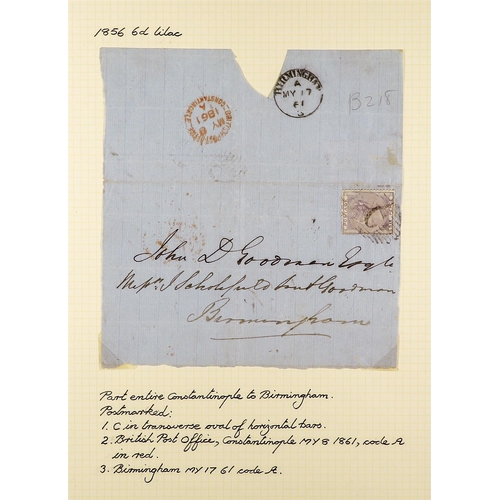 1856 6d lilac
BIRMINGHAM
A
MY 17
61
B218
BRITISH POST OFFICE CONSTANTINOPLE
A
MY 8
1861
C
John D Goodman Esqre
Messrs Scholefield
Goodman
Birmingham
Part entire Constantinople to Birmingham.
Postmarked:
1. C in transverse oval of horizontal bars.
2. British Post Office, Constantinople MY 8 1861, code A
in red.
3. Birmingham MY 17 61 code A.